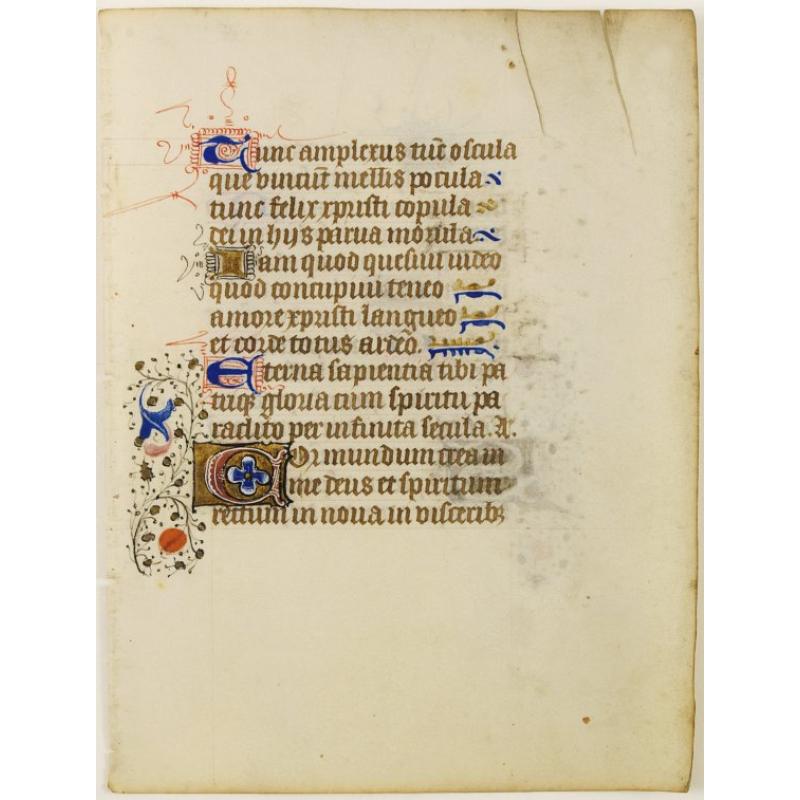 Tunc amplexus tūc oscula
que vincūt mellis pocula
tunc felix xpristi copula
sed in hijs parua morula
Iam quod quesiui video
quod concupiui teneo
amore xpristi langueo
et corde totus ardeo.
Eterna sapientia tibi pa
triqȝ gloria cum spiritu pa
raclito per infinita secula. A.
Cor mundum crea in
me deus et spiritum
rectum in noua in visceribȝ